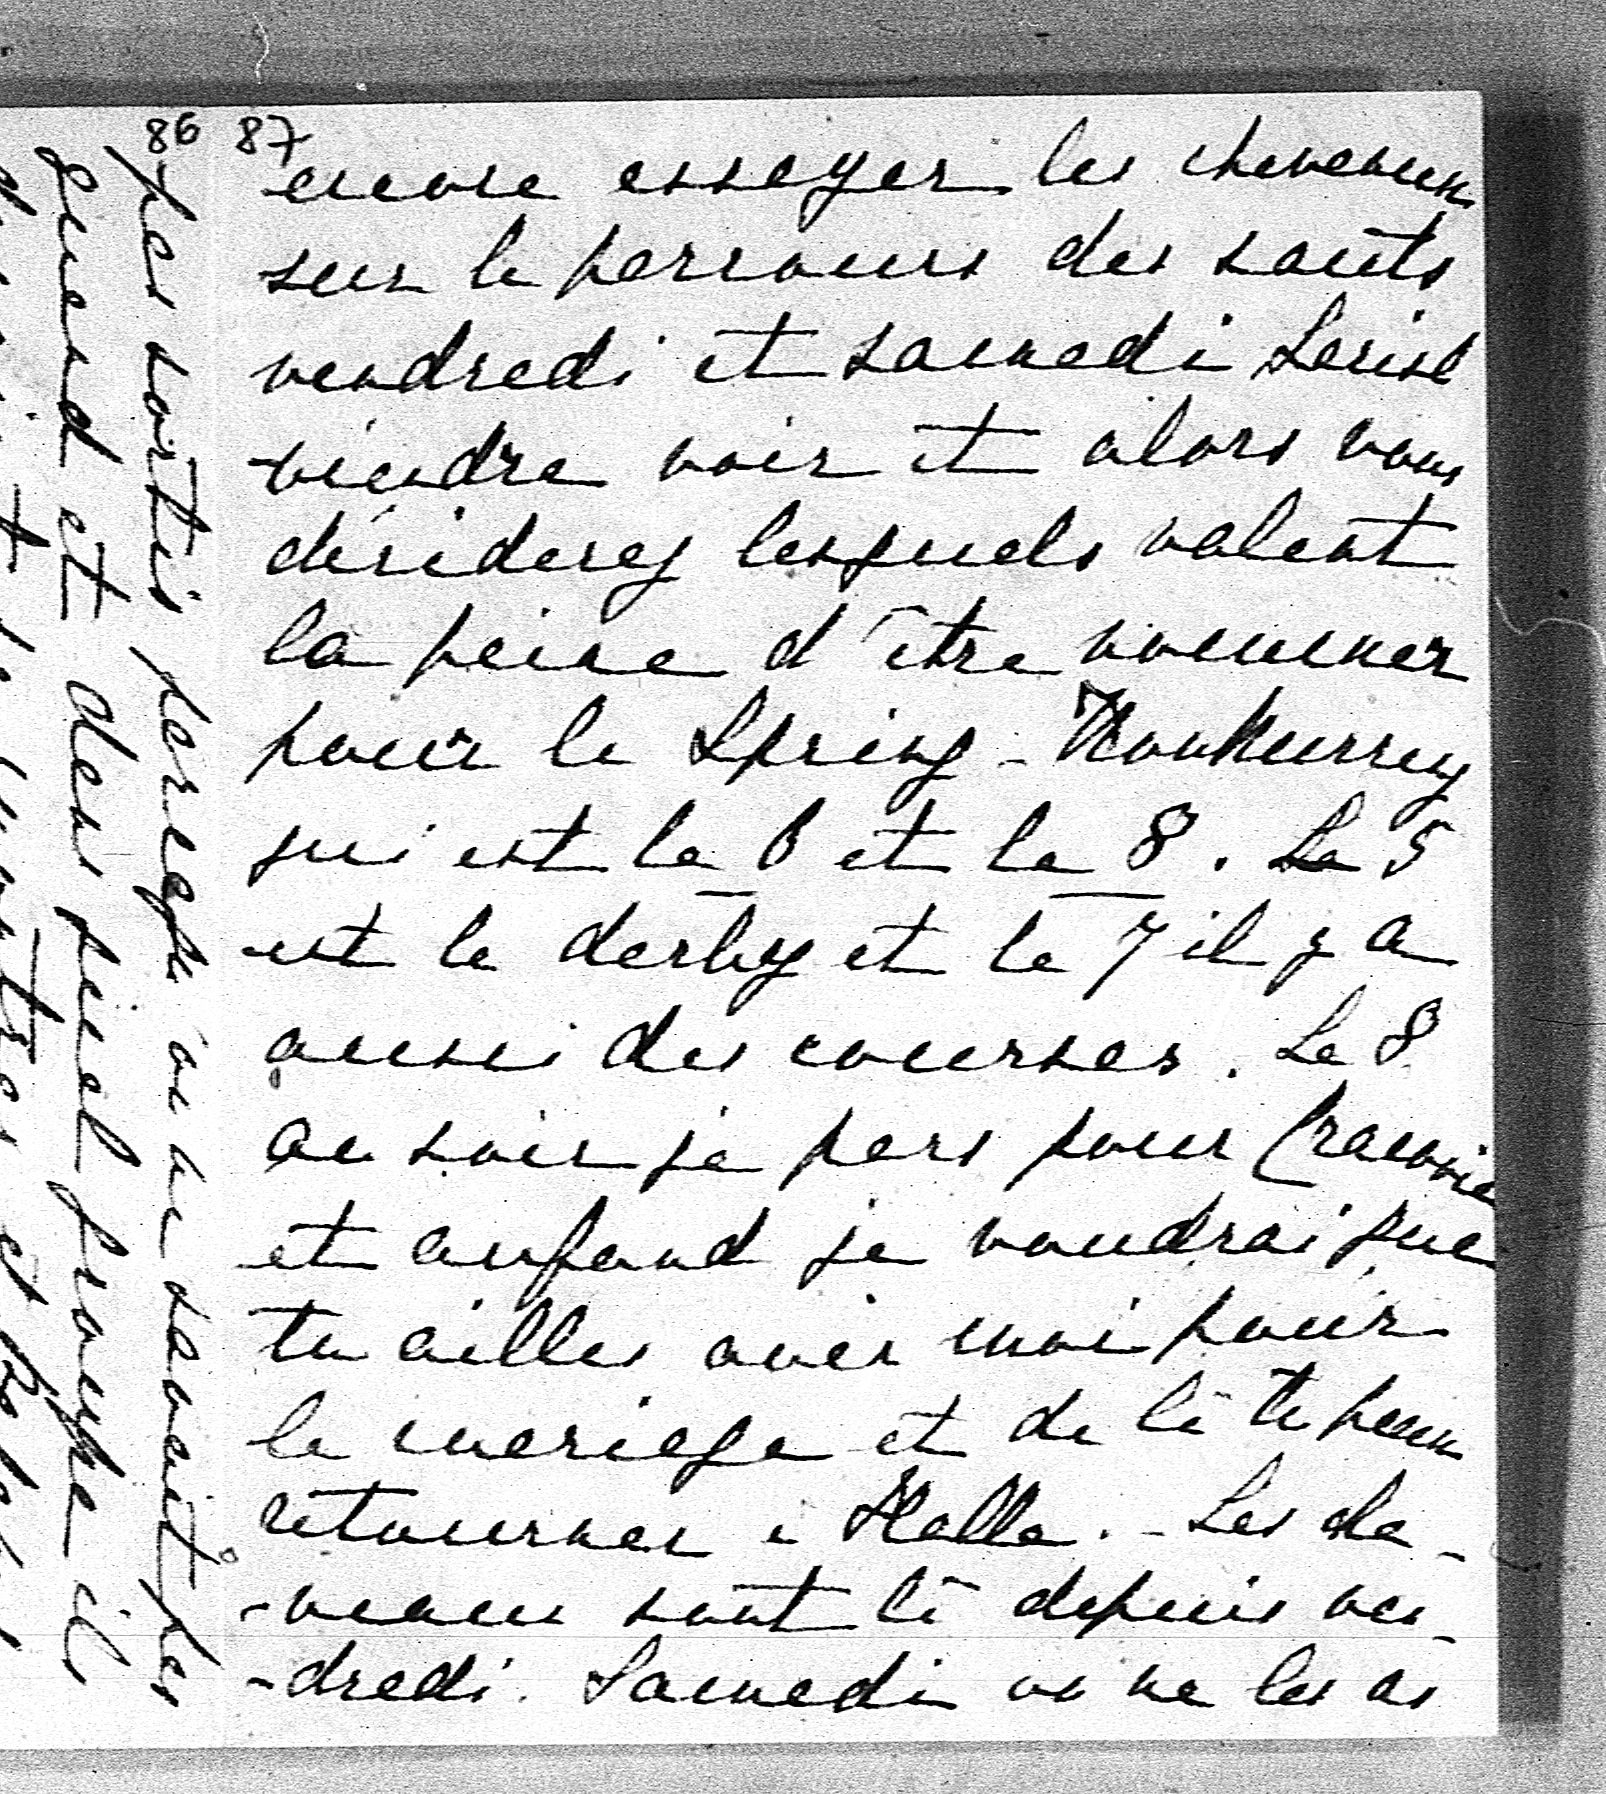 86 87
encore essayer les cheveaux
sur le parcours des sauts
vendredi et samedi Louise
viendra voir et alors vous
déciderez lesquels valent
la peine d'être nommer
pour le Spring - Konkurrenz
qui est le 6 et le 8. Le 5
est le derby et le 7 il y a
aussi des courses. Le 8
au soir je pars pour Cracovie
et aufond je voudrai que
tu ailles avec moi pour
le mariage et de là tu peux
retourner à Halle. - Les che-
-veaux sont là depuis ven-
-dredi. Samedi on ne les a
pas sortis parce qu'on ne savait pas
quand et des quel